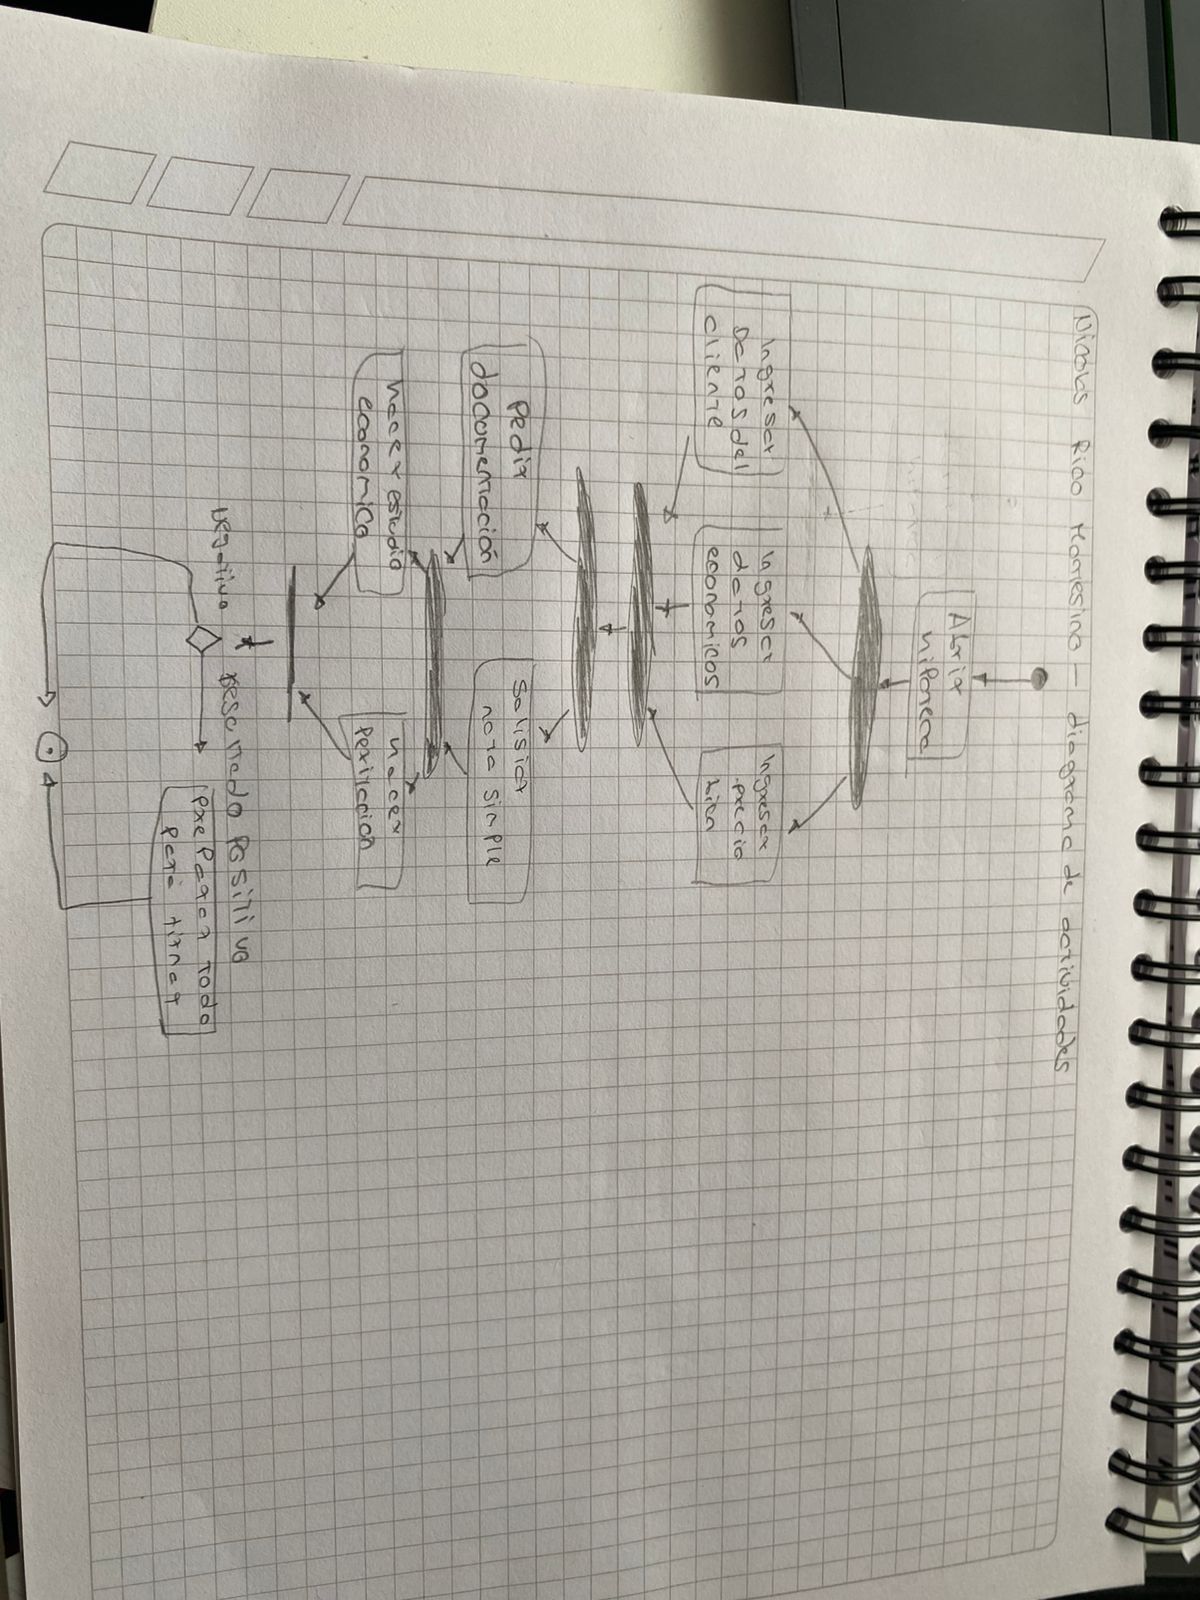 Nicolas Rico Montesino - diagrama de actividades
Abrir
hipoteca
Ingresar
datos del
cliente
Ingresar
datos
economicos
Ingresar
precio
bien
Pedir
documentación
Solisitar
nota simple
Hacer estudio
economico
Hacer
peritacion
negativo
Resultado Positivo
Preparar todo
para firmar